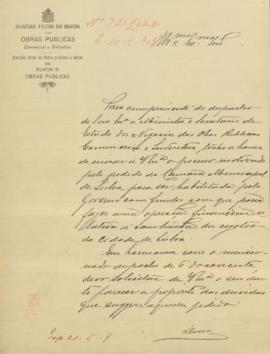 SECRETARIA D'ESTADO DOS NEGOCIOS
DAS
OBRAS PUBLICAS
Commercio e Industria
Direcção Geral de Obras publicas e minas
Repartição de
OBRAS PUBLICAS
Ill.mo e Ex.mo Snr
Para cumprimento do despacho de
Sua Ex.a o Ministro e Secretario de
Estado dos Negocios das Obras Publicas
Commercio e Industria, tenho a honra
de enviar a V. Ex.a o processo motivado
pelo pedido da Camara Municipal
de Lisboa para ser habilitada pelo
Governo com fundos com que possa
fazer uma operação financeira
relativa á construcção dos esgotos
da cidade de Lisboa.
Em harmonia com o mencio-
nado despacho de 6 do corrente
devo solicitar de V. Ex.a o seu
parecer a proposito das duvidas
que suggere aquelle pedido.